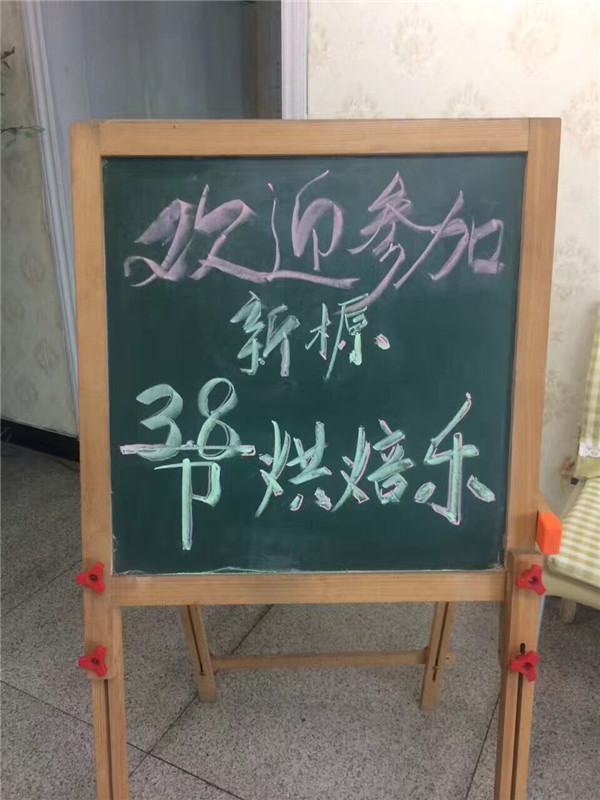 欢迎参加
新榞
3.8节烘焙乐